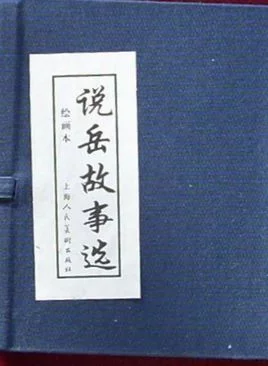 说岳故事选
绘画本
上海人民美术出版社